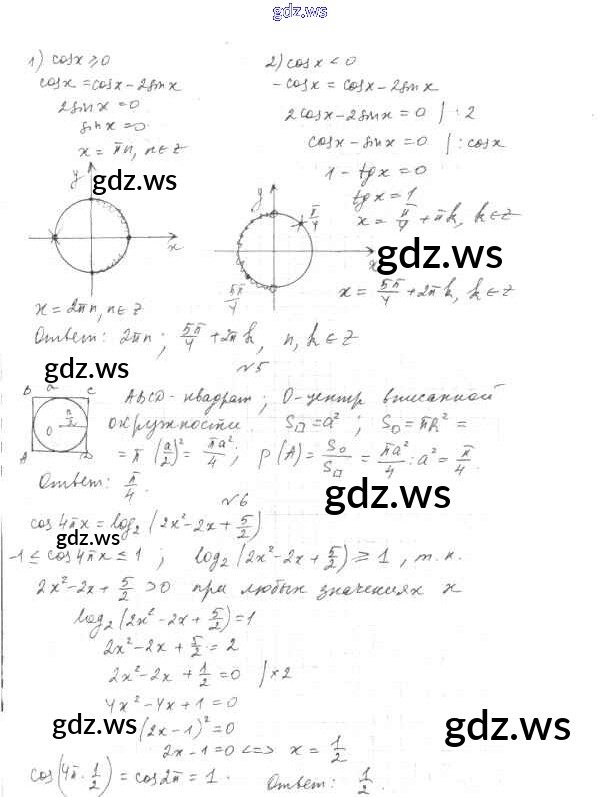 gdz.ws
1) cosx ≥ 0
cosx = cosx - 2sinx
2sinx = 0
sinx = 0
x = πn, n∈z
y
gdz.ws
x
x = 2πn, n∈z
2) cosx < 0
-cosx = cosx - 2sinx
2cosx - 2sinx = 0 | :2
cosx - sinx = 0 | :cosx
1 - tgx = 0
tgx = 1
x = π/4 + πk, k∈z
y
π/4
gdz.ws
x
5π/4
x = 5π/4 + 2πk, k∈z
Ответ: 2πn; 5π/4 + 2πk, n, k∈z
gdz.ws
№5
B a C
O a/2
A D
ABCD - квадрат; O - центр вписанной
окружности. S□ = a²; S○ = πR² =
= π(a/2)² = πa²/4; p(A) = S○/S□ = πa²/4 : a² = π/4.
Ответ: π/4.
gdz.ws
№6
cos4πx = log₂(2x² - 2x + 5/2)
gdz.ws
-1 ≤ cos4πx ≤ 1; log₂(2x² - 2x + 5/2) ≥ 1, т.к.
2x² - 2x + 5/2 > 0 при любых значениях x
log₂(2x² - 2x + 5/2) = 1
2x² - 2x + 5/2 = 2
2x² - 2x + 1/2 = 0 | ×2
4x² - 4x + 1 = 0
gdz.ws
(2x - 1)² = 0
gdz.ws
2x - 1 = 0 <=> x = 1/2
cos(4π · 1/2) = cos2π = 1. Ответ: 1/2.